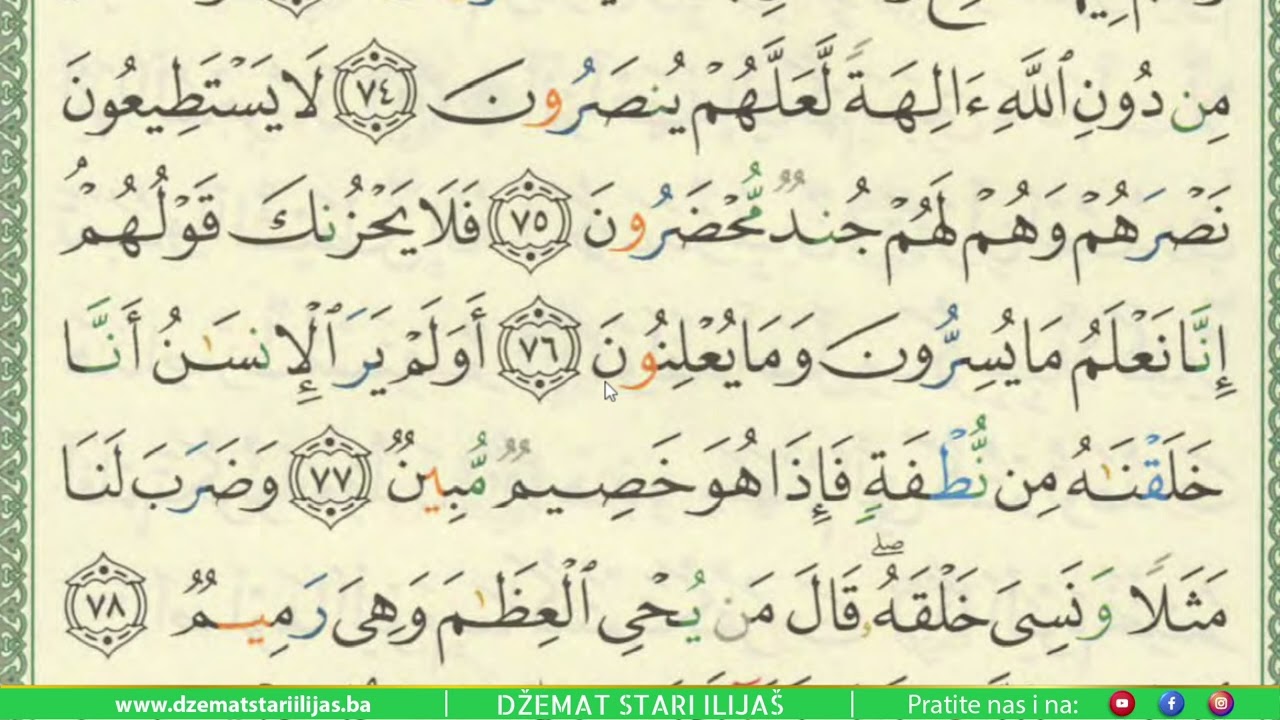 مِن دُونِ ٱللَّهِ ءَالِهَةً لَّعَلَّهُمْ يُنصَرُونَ ٧٤ لَا يَسْتَطِيعُونَ
نَصْرَهُمْ وَهُمْ لَهُمْ جُندٌ مُّحْضَرُونَ ٧٥ فَلَا يَحْزُنكَ قَوْلُهُمْ
إِنَّا نَعْلَمُ مَا يُسِرُّونَ وَمَا يُعْلِنُونَ ٧٦ أَوَلَمْ يَرَ ٱلْإِنسَٰنُ أَنَّا
خَلَقْنَٰهُ مِن نُّطْفَةٍ فَإِذَا هُوَ خَصِيمٌ مُّبِينٌ ٧٧ وَضَرَبَ لَنَا
مَثَلًا وَنَسِىَ خَلْقَهُۥ ۖ قَالَ مَن يُحْىِ ٱلْعِظَٰمَ وَهِىَ رَمِيمٌ ٧٨
www.dzematstariilijas.ba DŽEMAT STARI ILIJAŠ Pratite nas i na: